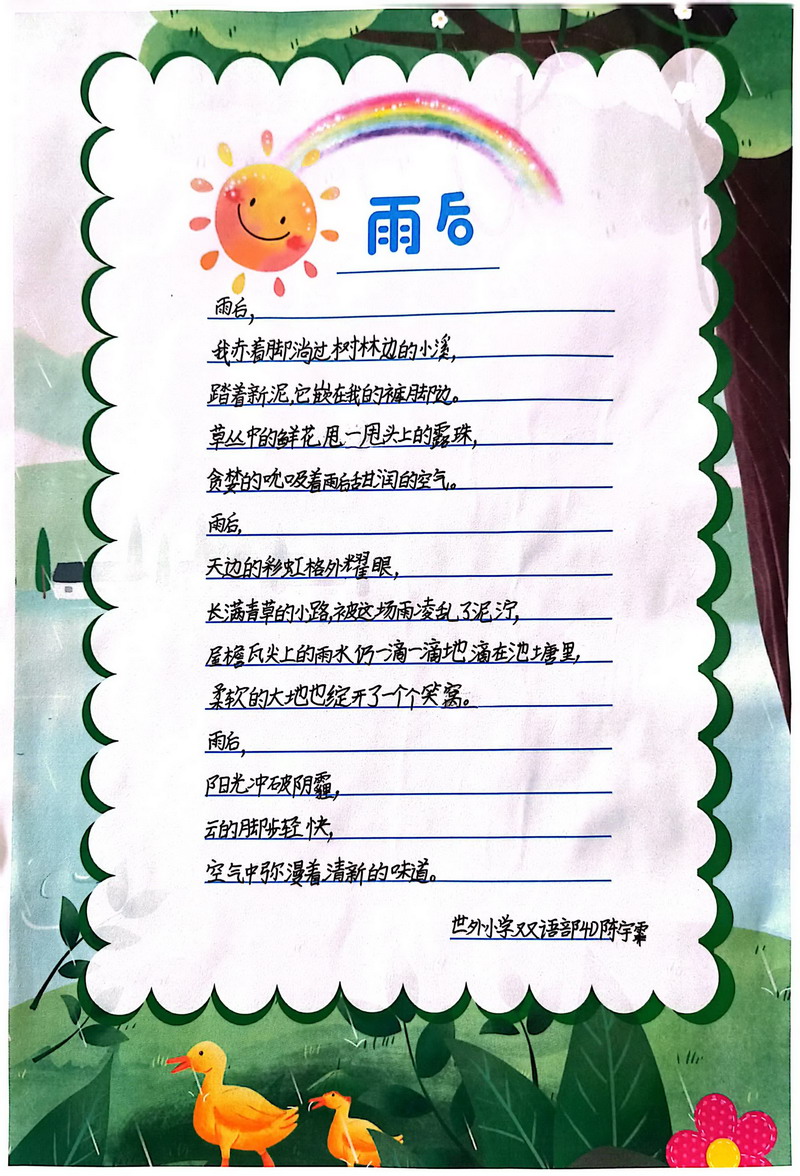 雨后
雨后,
我赤着脚淌过树林边的小溪,
踏着新泥,它嵌在我的裤脚边。
草丛中的鲜花,甩一甩头上的露珠,
贪婪的吮吸着雨后甜润的空气。
雨后,
天边的彩虹格外耀眼,
长满青草的小路,被这场雨凌乱了泥泞,
屋檐瓦尖上的雨水,仍一滴一滴地滴在池塘里,
柔软的大地也绽开了一个个笑窝。
雨后,
阳光冲破阴霾,
云的脚步轻快,
空气中弥漫着清新的味道。
世外小学双语部4D陈宇霏